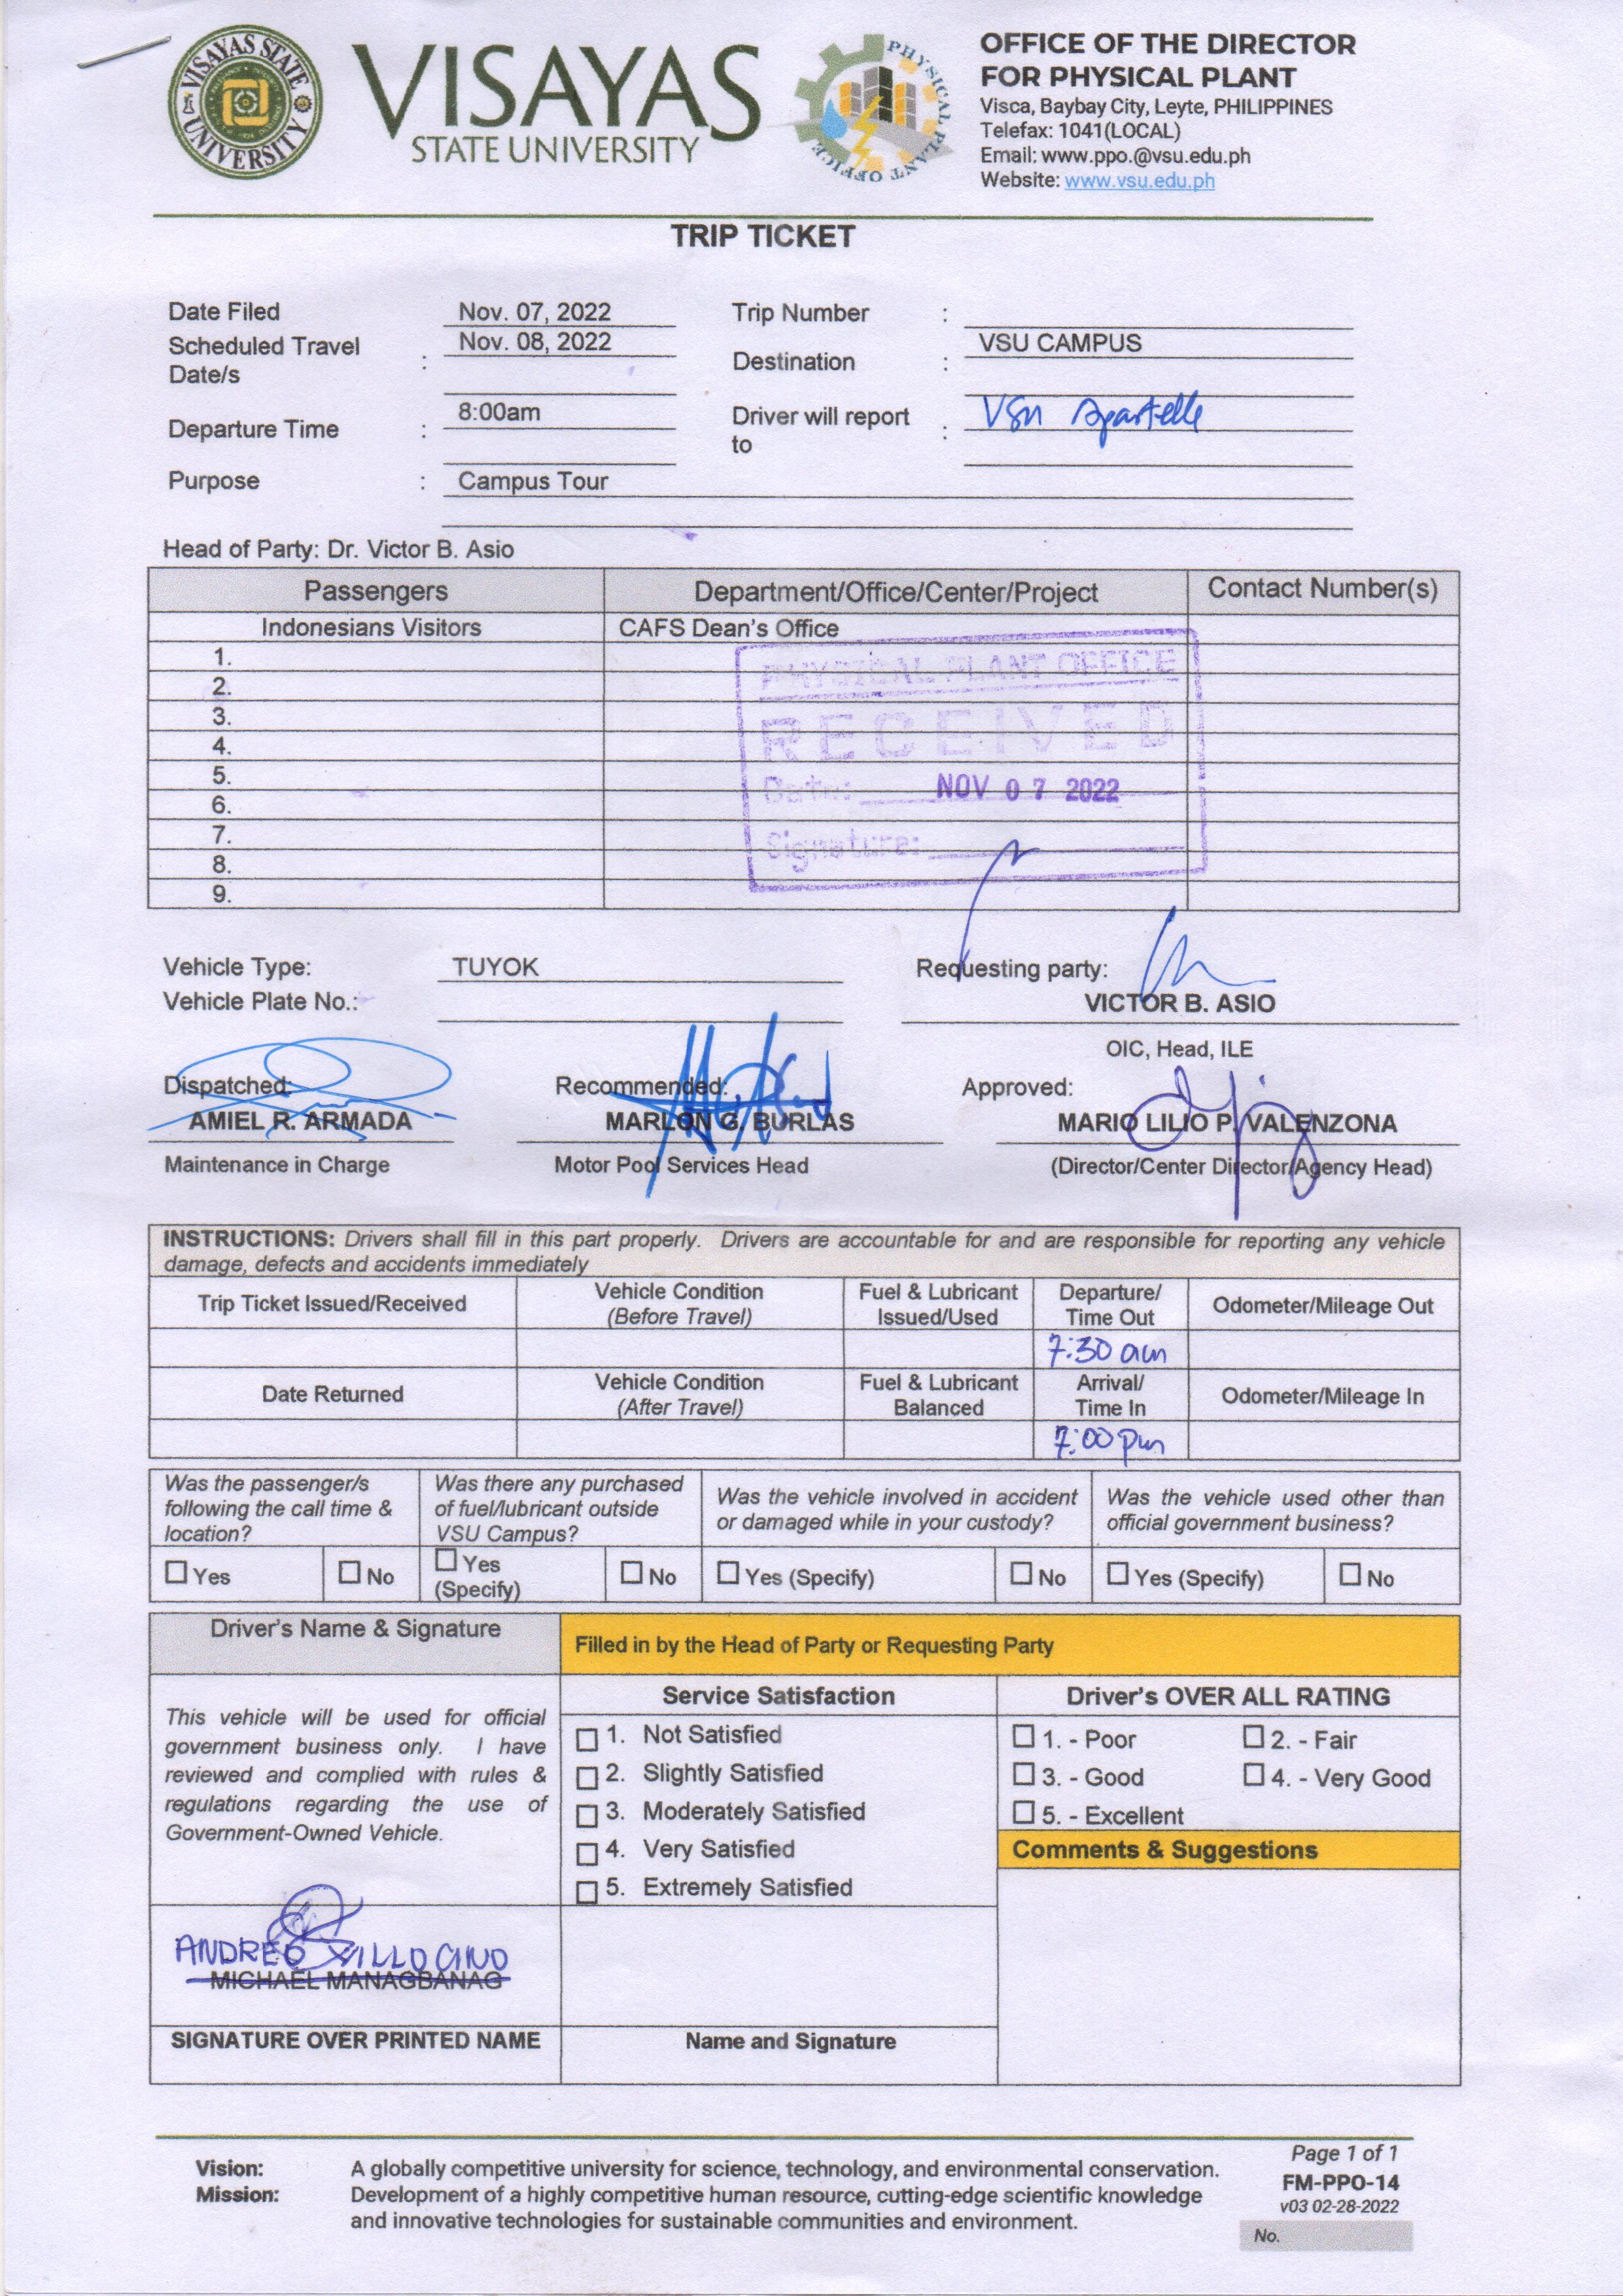 VISAYAS STATE UNIVERSITY
VISAYAS
STATE UNIVERSITY
PHYSICAL PLANT OFFICE
OFFICE OF THE DIRECTOR
FOR PHYSICAL PLANT
Visca, Baybay City, Leyte, PHILIPPINES
Telefax: 1041(LOCAL)
Email: www.ppo.@vsu.edu.ph
Website: www.vsu.edu.ph
TRIP TICKET
Date Filed Nov. 07, 2022 Trip Number :
Scheduled Travel Date/s : Nov. 08, 2022 Destination : VSU CAMPUS
Departure Time : 8:00am Driver will report to : VSU Apartelle
Purpose : Campus Tour
Head of Party: Dr. Victor B. Asio
Passengers Department/Office/Center/Project Contact Number(s)
Indonesians Visitors CAFS Dean's Office
1.
2.
3.
4.
5.
6.
7.
8.
9.
PHYSICAL PLANT OFFICE
RECEIVED
Date: NOV 07 2022
Signature:
Vehicle Type: TUYOK Requesting party:
Vehicle Plate No.: VICTOR B. ASIO
OIC, Head, ILE
Dispatched: Recommended: Approved:
AMIEL R. ARMADA MARLON G. BURLAS MARIO LILIO P. VALENZONA
Maintenance in Charge Motor Pool Services Head (Director/Center Director/Agency Head)
INSTRUCTIONS: Drivers shall fill in this part properly. Drivers are accountable for and are responsible for reporting any vehicle
damage, defects and accidents immediately
Trip Ticket Issued/Received Vehicle Condition (Before Travel) Fuel & Lubricant Issued/Used Departure/ Time Out Odometer/Mileage Out
7:30 am
Date Returned Vehicle Condition (After Travel) Fuel & Lubricant Balanced Arrival/ Time In Odometer/Mileage In
7:00 pm
Was the passenger/s following the call time & location? Was there any purchased of fuel/lubricant outside VSU Campus? Was the vehicle involved in accident or damaged while in your custody? Was the vehicle used other than official government business?
Yes No Yes (Specify) No Yes (Specify) No Yes (Specify) No
Driver's Name & Signature
Filled in by the Head of Party or Requesting Party
This vehicle will be used for official
government business only. I have
reviewed and complied with rules &
regulations regarding the use of
Government-Owned Vehicle.
Service Satisfaction
1. Not Satisfied
2. Slightly Satisfied
3. Moderately Satisfied
4. Very Satisfied
5. Extremely Satisfied
Driver's OVER ALL RATING
1. - Poor 2. - Fair
3. - Good 4. - Very Good
5. - Excellent
Comments & Suggestions
ANDREO VILLOCINO
MICHAEL MANAGBANAG
SIGNATURE OVER PRINTED NAME Name and Signature
Vision: A globally competitive university for science, technology, and environmental conservation.
Mission: Development of a highly competitive human resource, cutting-edge scientific knowledge
and innovative technologies for sustainable communities and environment.
Page 1 of 1
FM-PPO-14
v03 02-28-2022
No.